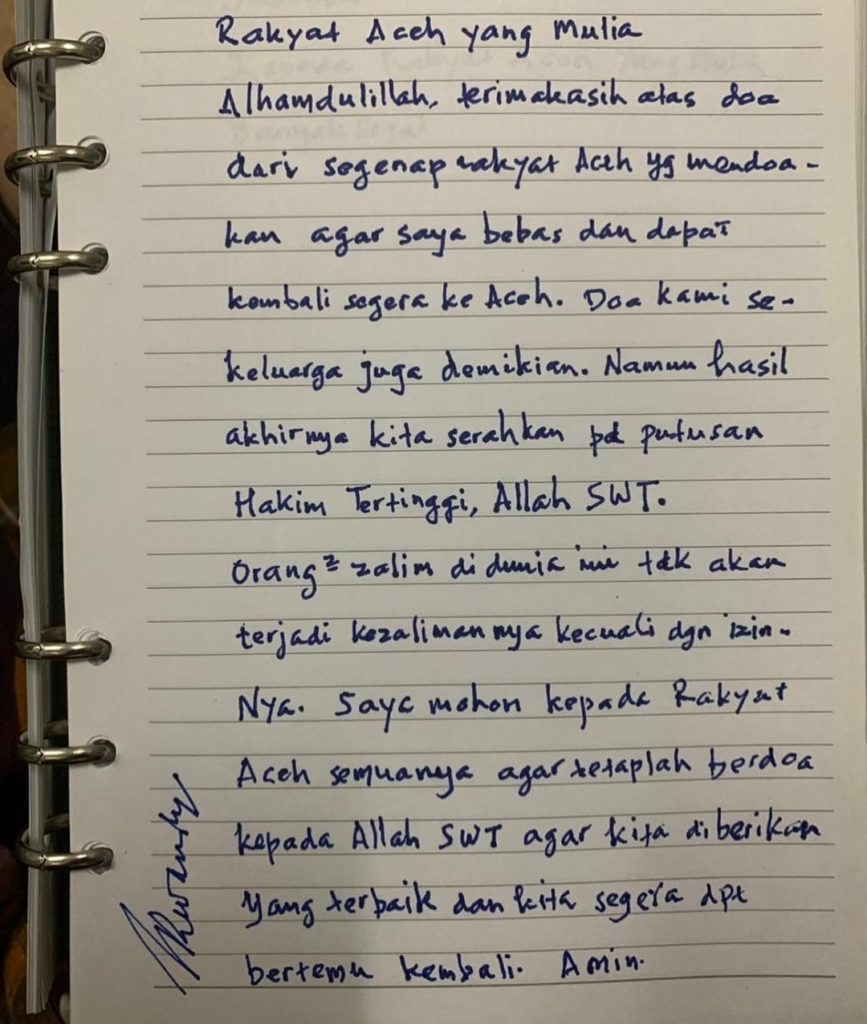 Rakyat Aceh yang Mulia
Alhamdulillah, terimakasih atas doa
dari segenap rakyat Aceh yg mendoa-
kan agar saya bebas dan dapat
kembali segera ke Aceh. Doa kami se-
keluarga juga demikian. Namun hasil
akhirnya kita serahkan pd putusan
Hakim Tertinggi, Allah SWT.
Orang² zalim di dunia ini tdk akan
terjadi kezalimannya kecuali dgn izin-
Nya. Saya mohon kepada Rakyat
Aceh semuanya agar tetaplah berdoa
kepada Allah SWT agar kita diberikan
yang terbaik dan kita segera dpt
bertemu kembali. Amin.